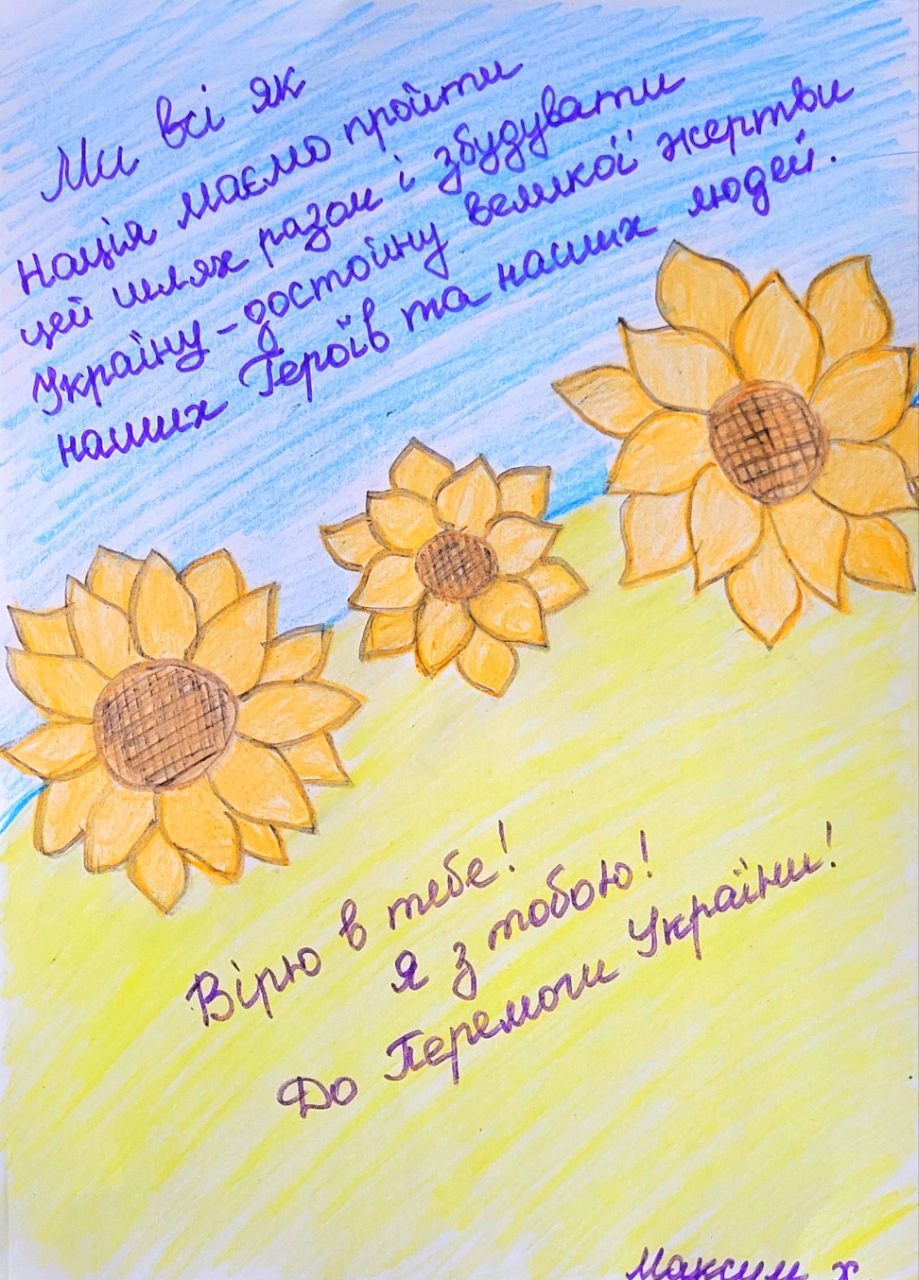 Ми всі як
Нація маємо пройти
цей шлях разом і збудувати
Україну - достойну великої жертви
наших Героїв та наших людей.
Вірю в тебе!
Я з тобою!
До Перемоги України!
Максим Х